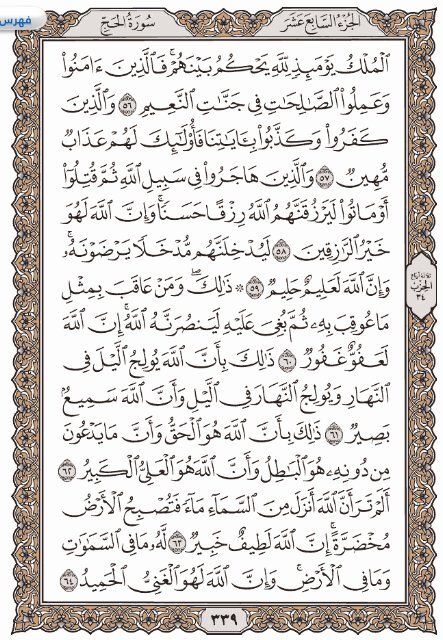 فهرس
الجزء السابع عشر
سورة الحج
ٱلْمُلْكُ يَوْمَئِذٍ لِّلَّهِ يَحْكُمُ بَيْنَهُمْ ۚ فَٱلَّذِينَ ءَامَنُوا۟
وَعَمِلُوا۟ ٱلصَّٰلِحَٰتِ فِى جَنَّٰتِ ٱلنَّعِيمِ ٥٦ وَٱلَّذِينَ
كَفَرُوا۟ وَكَذَّبُوا۟ بِـَٔايَٰتِنَا فَأُو۟لَٰٓئِكَ لَهُمْ عَذَابٌ
مُّهِينٌ ٥٧ وَٱلَّذِينَ هَاجَرُوا۟ فِى سَبِيلِ ٱللَّهِ ثُمَّ قُتِلُوٓا۟
أَوْ مَاتُوا۟ لَيَرْزُقَنَّهُمُ ٱللَّهُ رِزْقًا حَسَنًا ۚ وَإِنَّ ٱللَّهَ لَهُوَ
خَيْرُ ٱلرَّٰزِقِينَ ٥٨ لَيُدْخِلَنَّهُم مُّدْخَلًا يَرْضَوْنَهُۥ ۚ
وَإِنَّ ٱللَّهَ لَعَلِيمٌ حَلِيمٌ ٥٩ ۞ ذَٰلِكَ ۖ وَمَنْ عَاقَبَ بِمِثْلِ
مَا عُوقِبَ بِهِۦ ثُمَّ بُغِىَ عَلَيْهِ لَيَنصُرَنَّهُ ٱللَّهُ ۗ إِنَّ ٱللَّهَ
لَعَفُوٌّ غَفُورٌ ٦٠ ذَٰلِكَ بِأَنَّ ٱللَّهَ يُولِجُ ٱلَّيْلَ فِى
ٱلنَّهَارِ وَيُولِجُ ٱلنَّهَارَ فِى ٱلَّيْلِ وَأَنَّ ٱللَّهَ سَمِيعٌۢ
بَصِيرٌ ٦١ ذَٰلِكَ بِأَنَّ ٱللَّهَ هُوَ ٱلْحَقُّ وَأَنَّ مَا يَدْعُونَ
مِن دُونِهِۦ هُوَ ٱلْبَٰطِلُ وَأَنَّ ٱللَّهَ هُوَ ٱلْعَلِىُّ ٱلْكَبِيرُ ٦٢
أَلَمْ تَرَ أَنَّ ٱللَّهَ أَنزَلَ مِنَ ٱلسَّمَآءِ مَآءً فَتُصْبِحُ ٱلْأَرْضُ
مُخْضَرَّةً ۗ إِنَّ ٱللَّهَ لَطِيفٌ خَبِيرٌ ٦٣ لَّهُۥ مَا فِى ٱلسَّمَٰوَٰتِ
وَمَا فِى ٱلْأَرْضِ ۗ وَإِنَّ ٱللَّهَ لَهُوَ ٱلْغَنِىُّ ٱلْحَمِيدُ ٦٤
ثلاثة أرباع
الحزب
٣٤
٣٣٩